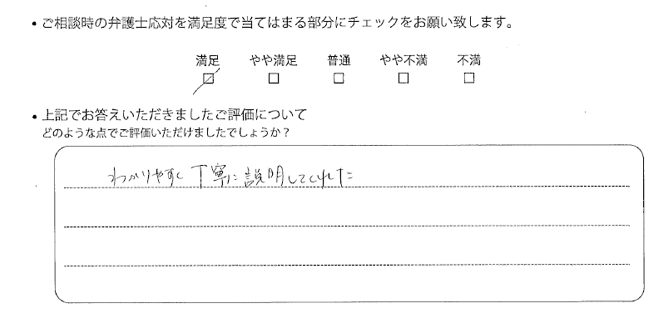 • ご相談時の弁護士応対を満足度で当てはまる部分にチェックをお願い致します。
満足 やや満足 普通 やや不満 不満
☑ □ □ □ □
• 上記でお答えいただきましたご評価について
どのような点でご評価いただけましたでしょうか？
わかりやすく丁寧に説明してくれた